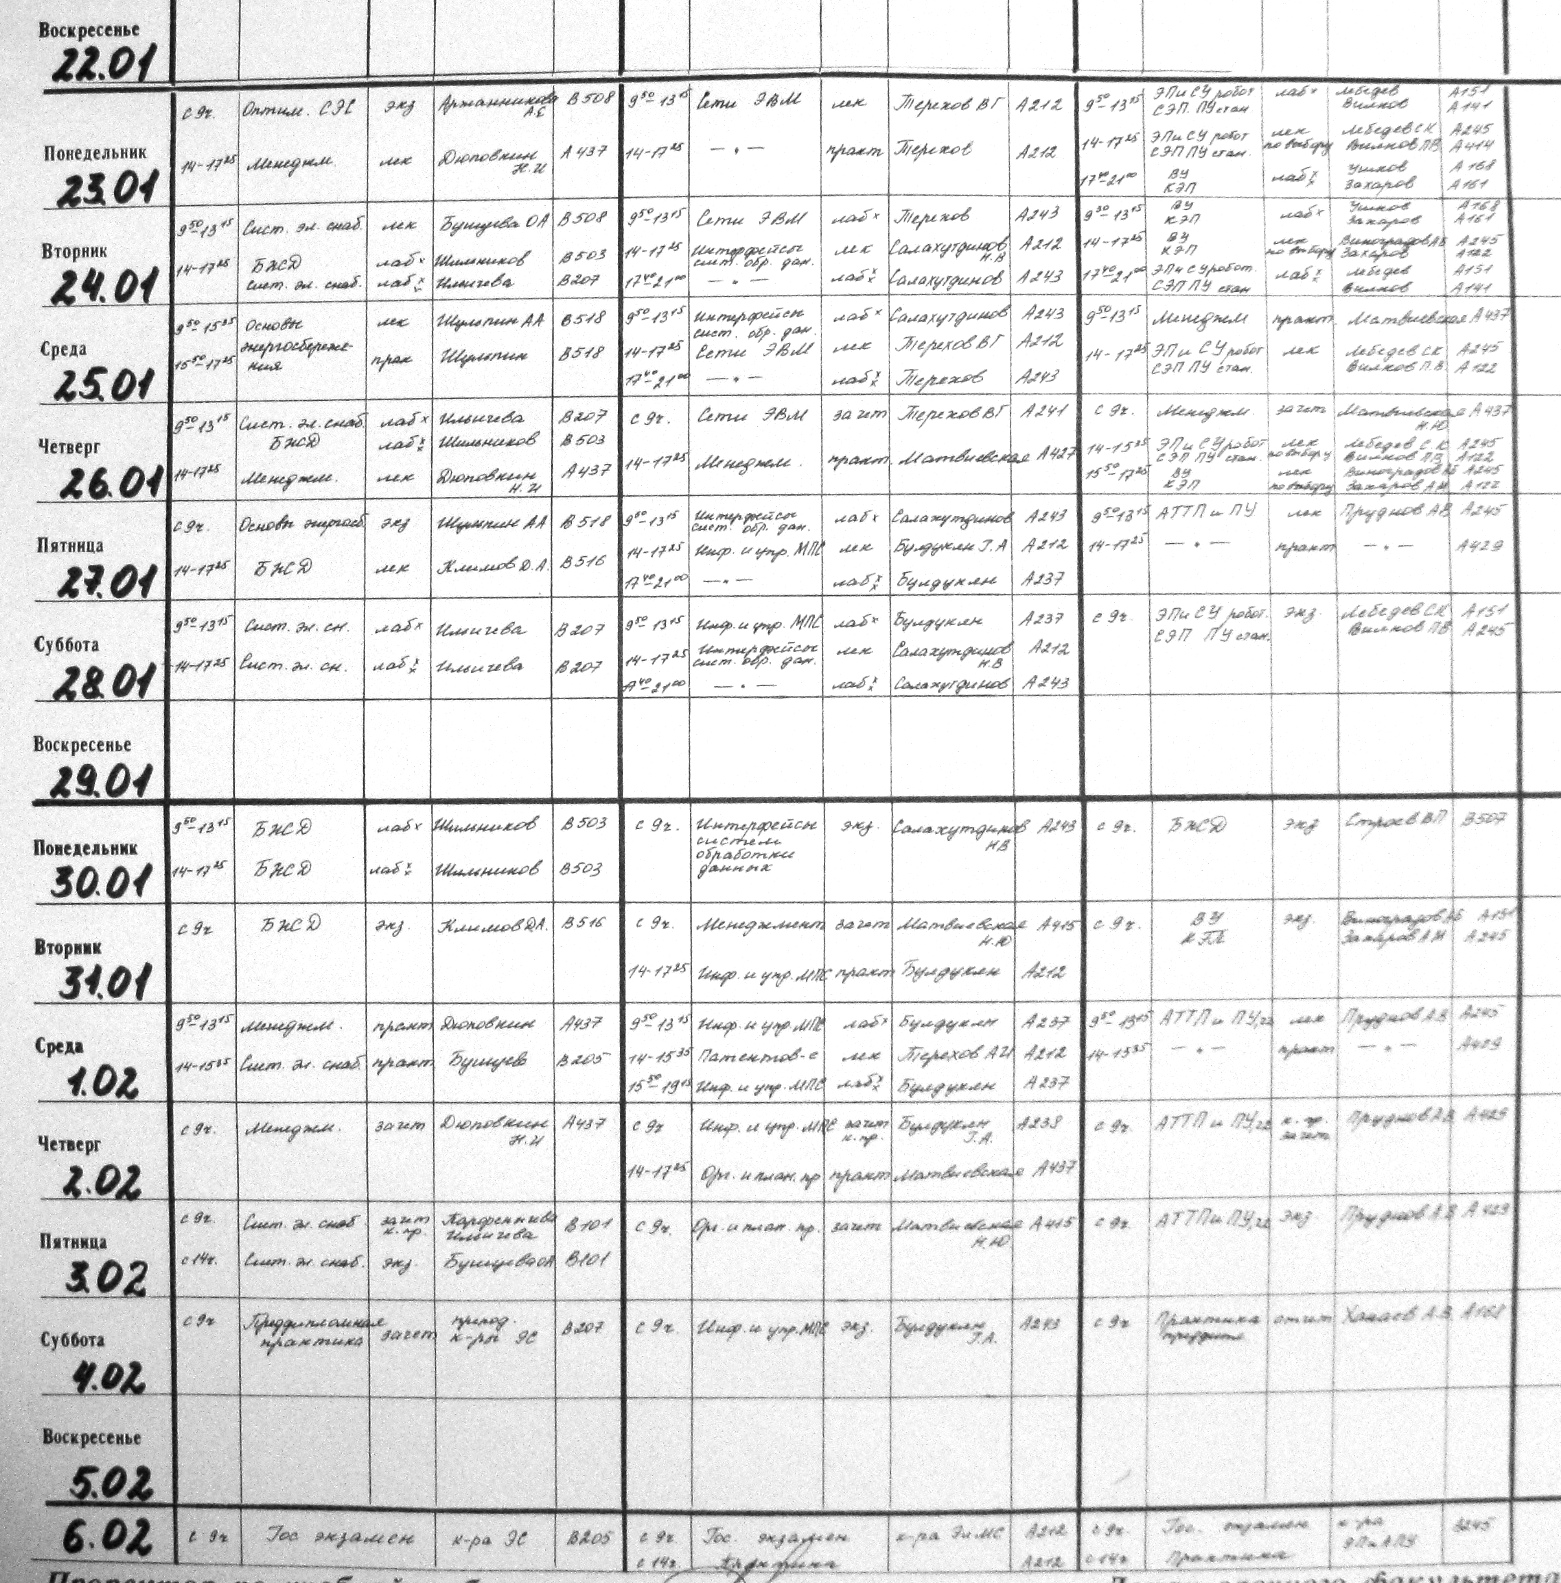 Воскресенье
22.01
Понедельник
23.01
с 9ч. Оптим. СЭС экз Аржанникова А.Е В508
14-17²⁵ Менеджм. лек Дюповкин Н.И А437
9⁵⁰-13¹⁵ Сети ЭВМ лек Терехов ВГ А212
14-17²⁵ —„— практ Терехов А212
9⁵⁰-13¹⁵ ЭП и СУ робот лабx Лебедев А151
СЭП. ПУ стан. Вилков А141
14-17²⁵ ЭП и СУ робот лек Лебедев СК А245
СЭП ПУ стан. по выбору Вилков ПВ А414
17⁴⁰-21⁰⁰ ВУ лаб Ушков А168
КЭП Захаров А161
Вторник
24.01
9⁵⁰-13¹⁵ Сист. эл. снаб. лек Бушуева ОА В508
14-17²⁵ БЖД лабx Шильников В503
Сист. эл. снаб. лабxx Ильичева В207
9⁵⁰-13¹⁵ Сети ЭВМ лабx Терехов А243
14-17²⁵ Интерфейсы сист. обр. дан. лек Салахутдинов Н.В А212
17⁴⁰-21⁰⁰ —„— лабxx Салахутдинов А243
9⁵⁰-13¹⁵ ВУ лабx Ушков А168
КЭП Захаров А161
14-17²⁵ ВУ лек Виноградов АБ А245
КЭП по выбору Захаров А122
17⁴⁰-21⁰⁰ ЭП и СУ робот. лабxx Лебедев А151
СЭП ПУ стан Вилков А141
Среда
25.01
9⁵⁰-15³⁵ Основы энергосбережения лек Шульпин АА В518
15⁵⁰-17²⁵ прак Шульпин В518
9⁵⁰-13¹⁵ Интерфейсы сист. обр. дан. лабx Салахутдинов А243
14-17²⁵ Сети ЭВМ лек Терехов ВГ А212
17⁴⁰-21⁰⁰ —„— лабxx Терехов А243
9⁵⁰-13¹⁵ Менеджм практ Матвиевская А437
14-17²⁵ ЭП и СУ робот лек Лебедев СК А245
СЭП ПУ стан. Вилков П.В. А122
Четверг
26.01
9⁵⁰-13¹⁵ Сист. эл. снаб. лабx Ильичева В207
БЖД лабxx Шильников В503
14-17²⁵ Менеджм. лек Дюповкин Н.И А437
с 9ч. Сети ЭВМ зачет Терехов ВГ А241
14-17²⁵ Менеджм. практ. Матвиевская А427
с 9ч. Менеджм зачет Матвиевская Н.Ю А437
14-15³⁵ ЭП и СУ робот лек Лебедев С.К А245
СЭП ПУ стан. по выбору Вилков ПВ А122
15⁵⁰-17²⁵ ВУ лек Виноградов АБ А245
КЭП по выбору Захаров АИ А122
Пятница
27.01
с 9ч. Основы энергосб. экз Шульпин АА В518
14-17²⁵ БЖД лек Климов Д.А. В516
9⁵⁰-13¹⁵ Интерфейсы сист. обр. дан. лабx Салахутдинов А243
14-17²⁵ Инф. и упр. МПС лек Булдукян Г.А А212
17⁴⁰-21⁰⁰ —„— лабxx Булдукян А237
9⁵⁰-13¹⁵ АТТП и ПУ лек Пруднов АВ А245
14-17²⁵ —„— практ —„— А429
Суббота
28.01
9⁵⁰-13¹⁵ Сист. эл. сн. лабx Ильичева В207
14-17²⁵ Сист. эл. сн. лабxx Ильичева В207
9⁵⁰-13¹⁵ Инф. и упр. МПС лабx Булдукян А237
14-17²⁵ Интерфейсы сист. обр. дан. лек Салахутдинов Н.В А212
17⁴⁰-21⁰⁰ —„— лабxx Салахутдинов А243
с 9ч. ЭП и СУ робот. экз. Лебедев СК А151
СЭП ПУ стан. Вилков ПВ А245
Воскресенье
29.01
Понедельник
30.01
9⁵⁰-13¹⁵ БЖД лабx Шильников В503
14-17²⁵ БЖД лабxx Шильников В503
с 9ч. Интерфейсы систем обработки данных экз. Салахутдинов НВ А243
с 9ч. БЖД экз Строев ВП В507
Вторник
31.01
с 9ч БЖД экз. Климов Д.А. В516
с 9ч Менеджмент зачет Матвиевская Н.Ю А415
14-17²⁵ Инф. и упр. МПС практ Булдукян А212
с 9ч. ВУ экз. Виноградов АБ А151
КЭП Захаров АИ А245
Среда
1.02
9⁵⁰-13¹⁵ Менеджм. практ Дюповкин А437
14-15³⁵ Сист. эл. снаб. практ Бушуева В205
9⁵⁰-13¹⁵ Инф. и упр. МПС лабx Булдукян А237
14-15³⁵ Патентов-е лек Терехов АИ А212
15⁵⁰-19¹⁵ Инф. и упр. МПС лабxx Булдукян А237
9⁵⁰-13¹⁵ АТТП и ПУ лек Пруднов А.В А245
14-15³⁵ —„— практ —„— А429
Четверг
2.02
с 9ч. Менеджм. зачет Дюповкин Н.И А437
с 9ч Инф. и упр. МПС зачет к.пр. Булдукян Г.А. А238
14-17²⁵ Орг. и план. пр практ Матвиевская А437
с 9ч. АТТП и ПУ к.пр. зачет Пруднов А.В А429
Пятница
3.02
с 9ч. Сист. эл. снаб. зачет к.пр. Парфенычева Ильичева В101
с 14ч. Сист. эл. снаб. экз. Бушуева ОА В101
с 9ч. Орг. и план. пр. зачет Матвиевская Н.Ю А415
с 9ч. АТТП и ПУ экз. Пруднов А.В. А429
Суббота
4.02
с 9ч Преддипломная практика зачет препод. к-ры ЭС В207
с 9ч. Инф. и упр. МПС экз. Булдукян Г.А. А243
с 9ч Практика отчет Ханаев А.В. А168
Воскресенье
5.02
6.02
с 9ч Гос экзамен к-ра ЭС В205
с 9ч. Гос. экзамен к-ра ЭиМС А212
с 14ч. А212
с 9ч. Гос. экзамен к-ра ЭПиАПУ
с 14ч Практика